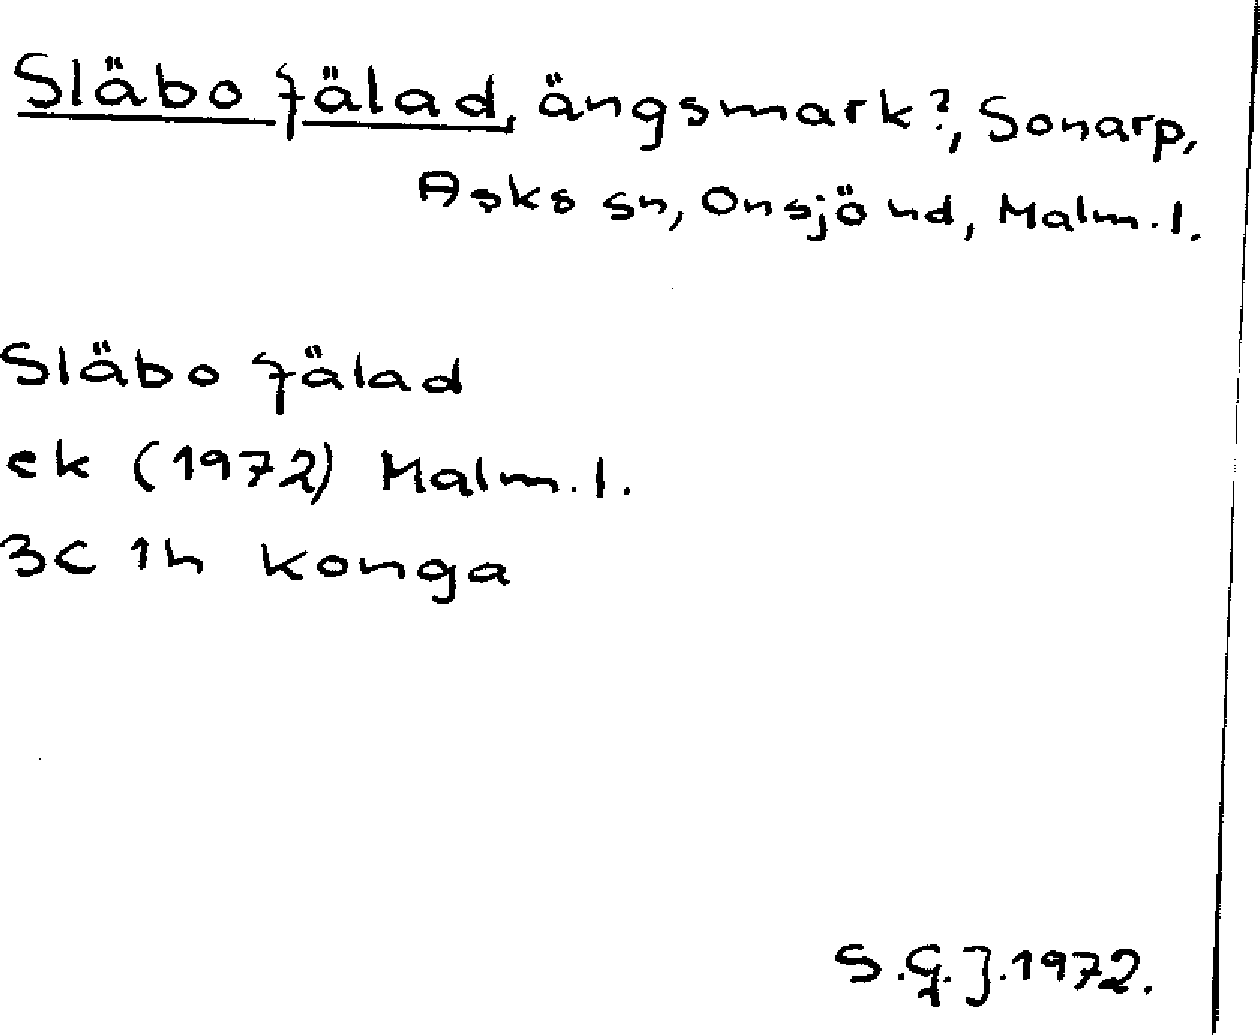 Släbo fälad, ängsmark?, Sonarp,
Asks sn, Onsjö hd, Malm.l.
Släbo fälad
ek (1972) Malm.l.
3C 1h Konga
S.G.J.1972.